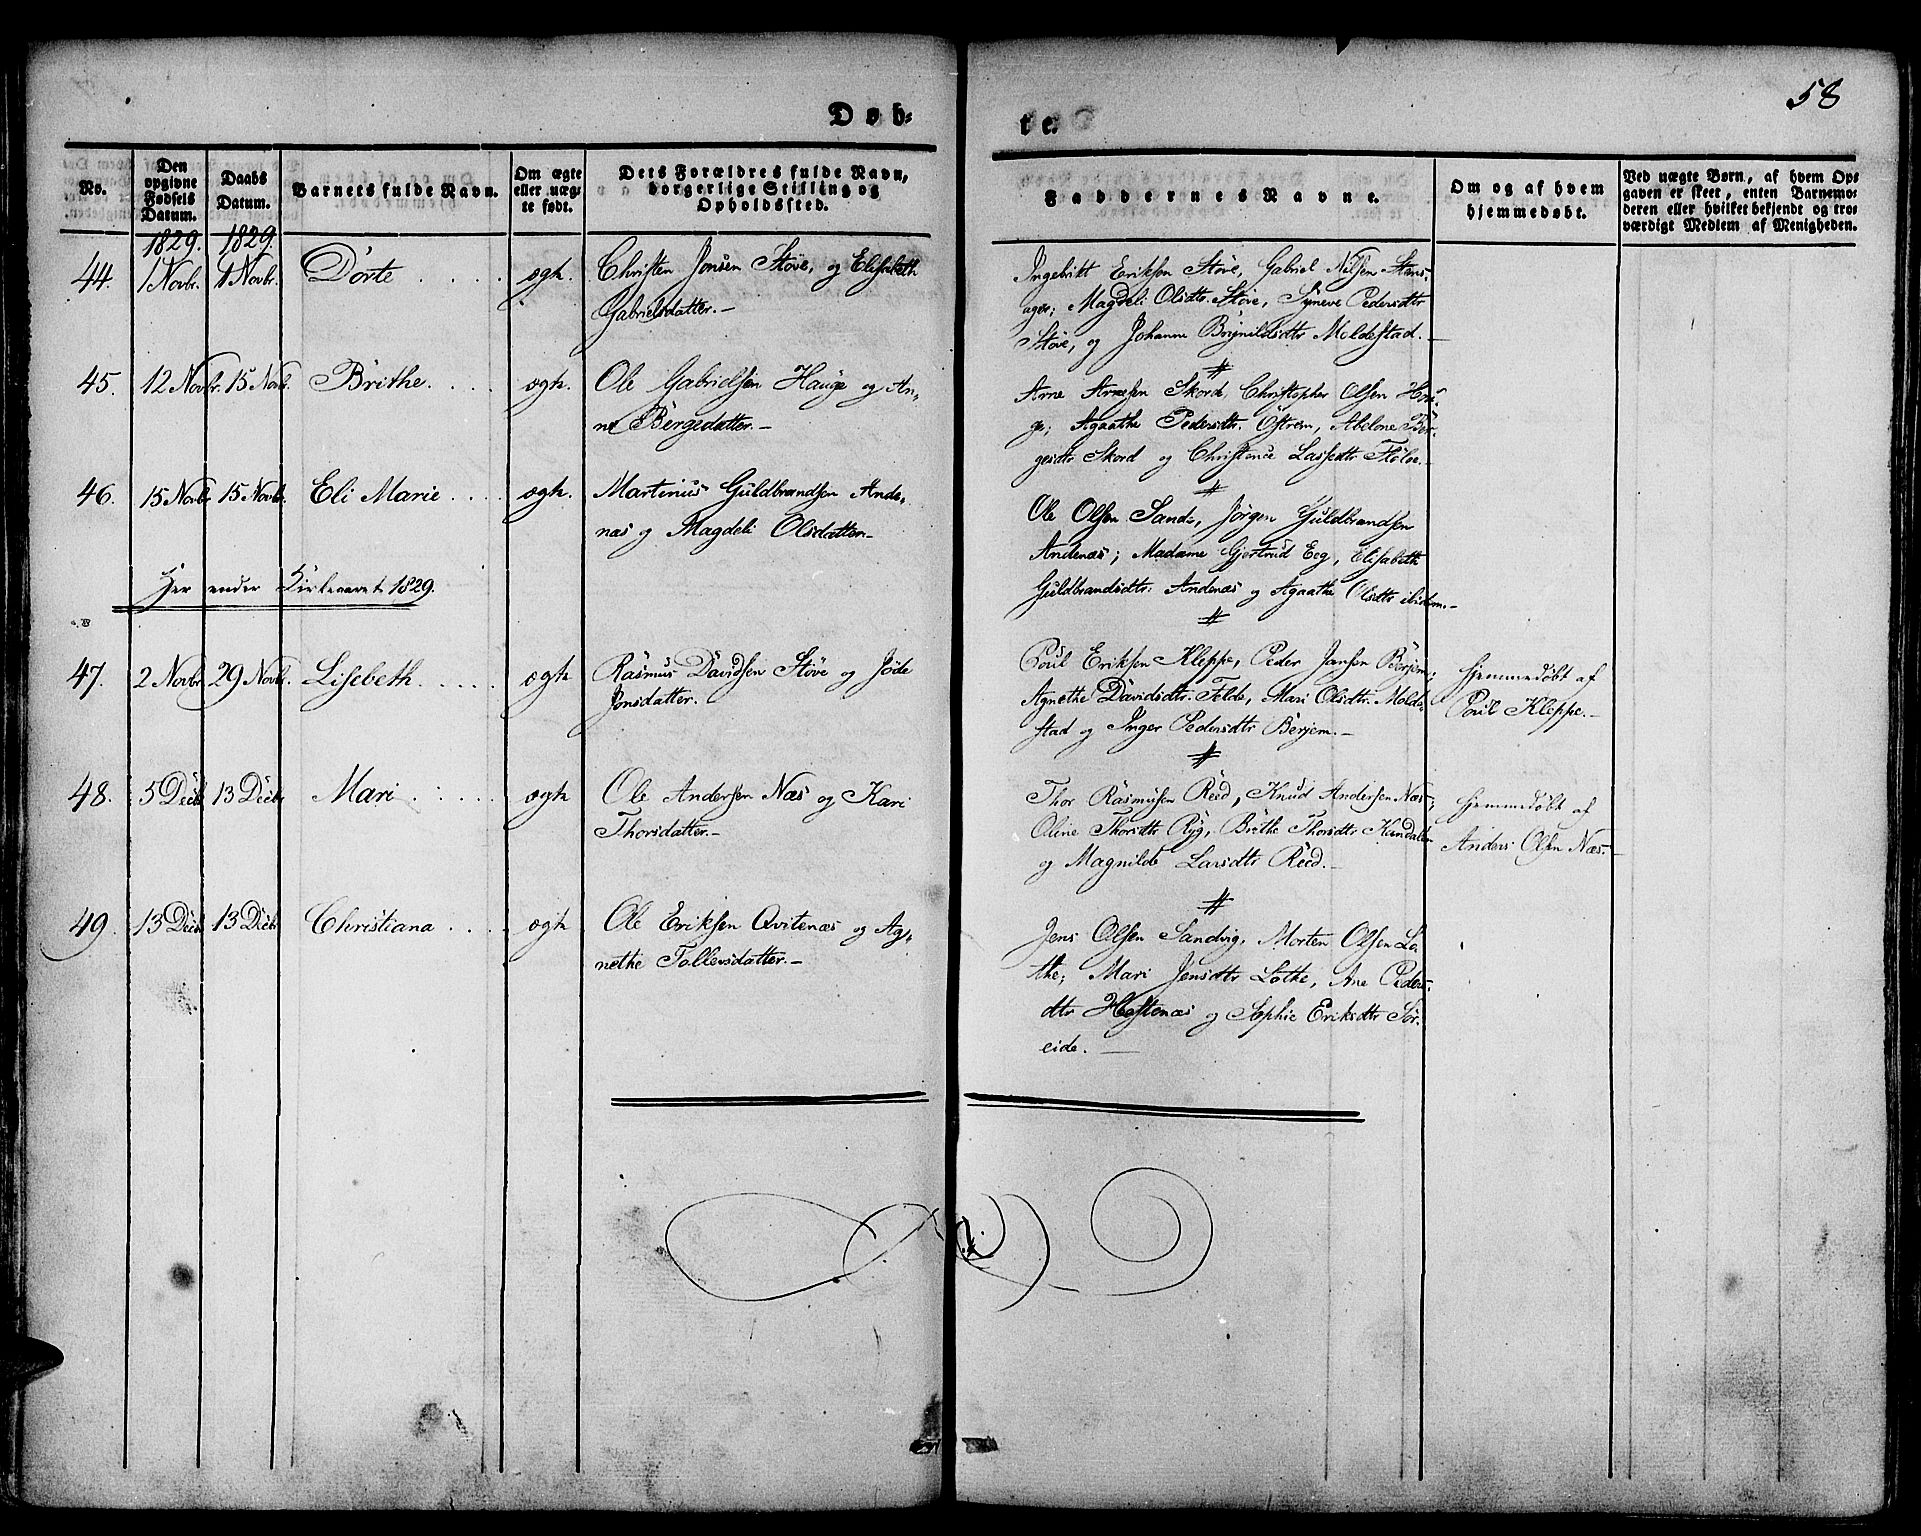 58
Døb-
te.
No.
Den
opgivne
Fødsels
Datum.
Daabs
Datum.
Barnets fulde Navn.
Om ægte
eller uæg-
te født.
Dets Forældres fulde Navn,
borgerlige Stilling og
Opholdssted.
Faddernes Navne.
Om og af hvem
hjemmedøbt.
Ved uægte Børn, af hvem Op-
gaven er skeet, enten Barnemo-
deren eller hvilket bekjendt og tro-
værdigt Medlem af Menigheden.
1829. 1829.
44. 1 Novbr. 1 Novbr. Dorte ægte.
Christen Jonsen Støve, og Elisabeth
Gabrielsdatter.-
Ingebrikt Eriksen Støve, Gabriel Nilsen
Magdeli Olsdtr. Støve, Synneve Pedersdtr
Støve, og Johanne Brynildsdtr Moldestad.-
45. 12 Novbr. 15 Novb. Brithe. ægte.
Ole Gabrielsen Hauge og An-
ne Bergedatter.-
Arne Arnesen Skord, Christopher Olsen Hau-
ge; Agaathe Pedersdtr. Østrem, Abelone Ber-
gesdtr Skord og Christence Lassedtr
46. 15 Novbr 15 Novbr. Eli Marie ægte.
Martinus Guldbrandsen Ande-
næs og Magdeli Olsdatter-
Ole Olsen Sande, Jørgen Guldbrandsen
Andenæs; Madame Gjertrud Eeg, Elisabeth
Guldbrandsdtr: Andenæs og Agaathe Olsdtr ibidem.-
Her ender Kirkeaaret 1829.
47. 2 Novbr 29 Novbr. Lisebeth. ægte
Rasmus Davidsen Støve og Jøde
Jonsdatter.
Poul Eriksen Kleppe, Peder Jansen Berjem;
Agnethe Davidsdtr. Felde, Mari Olsdtr. Molde-
stad og Inger Pedersdtr Berjem.-
Hjemmedøbt af
Poul Kleppe.-
48. 5 Decbr 13 Decbr Mari ægte
Ole Andersen Næs og Kari
Thorsdatter-
Thor Rasmusen Reed, Knud Andersen Næs;
Oline Thorsdtr Ryg, Brithe Thorsdtr Kandalen
og Magnilde Larsdtr Reed.-
Hjemmedøbt af
Anders Olsen Næs.-
49. 13 Decbr 13 Decbr Christiana ægte
Ole Eriksen Qvitenæs og Ag-
nethe Tollevsdatter.-
Jens Olsen Sandvig, Morten Olsen Lo-
the; Mari Jensdtr Lothe, Ane Peders-
dtr Hestenæs og Sophie Eriksdtr Sør-
eide.-